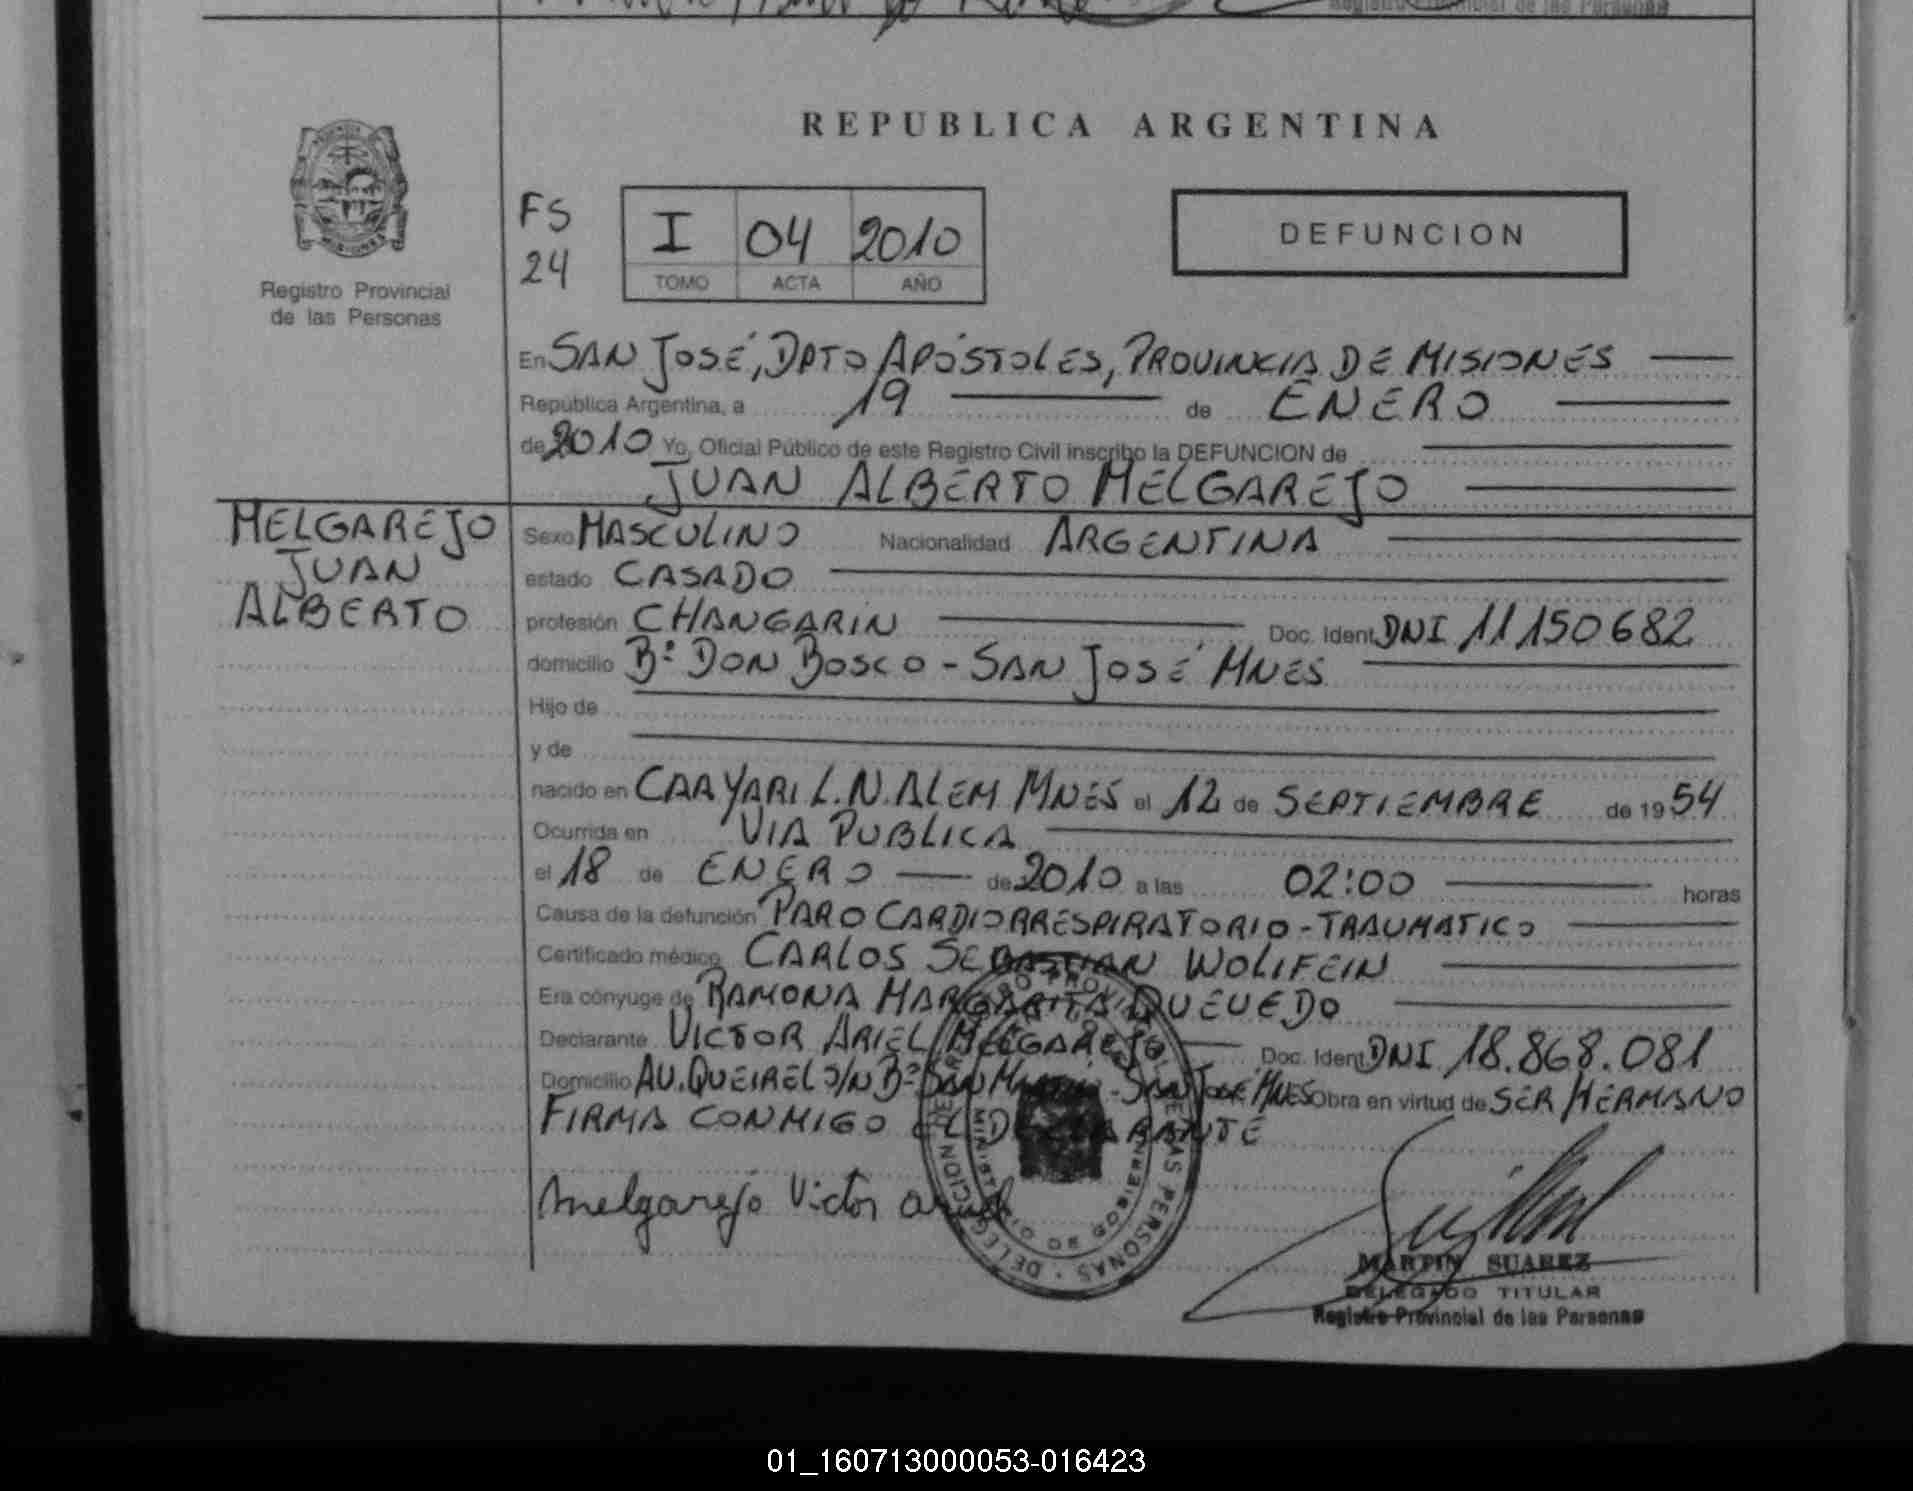 REPUBLICA ARGENTINA
Registro Provincial
de las Personas
FS
24
I 04 2010
TOMO ACTA AÑO
DEFUNCION
En SAN JOSÉ, DPTO APÓSTOLES, PROVINCIA DE MISIONES
República Argentina, a 19 de ENERO
de 2010 Yo, Oficial Público de este Registro Civil inscribo la DEFUNCION de
JUAN ALBERTO MELGAREJO
MELGAREJO
JUAN
ALBERTO
Sexo MASCULINO Nacionalidad ARGENTINA
estado CASADO
profesión CHANGARIN Doc. Ident. DNI 11150682
domicilio Bº DON BOSCO - SAN JOSÉ MNES
Hijo de
y de
nacido en CAAYARI L.N.ALEM MNES el 12 de SEPTIEMBRE de 1954
Ocurrida en VIA PUBLICA
el 18 de ENERO de 2010 a las 02:00 horas
Causa de la defunción PARO CARDIORRESPIRATORIO - TRAUMATICO
Certificado médico CARLOS SEBASTIAN WOLIFEIN
Era cónyuge de RAMONA MARGARITA QUEVEDO
Declarante VICTOR ARIEL MELGAREJO Doc. Ident. DNI 18.868.081
Domicilio AV.QUEIREL S/N Bº SAN MARTIN - SAN JOSE MNES Obra en virtud de SER HERMANO
FIRMA CONMIGO EL DECLARANTE
Melgarejo Victor ariel
MARTIN SUAREZ
DELEGADO TITULAR
Registro Provincial de las Personas
01_160713000053-016423